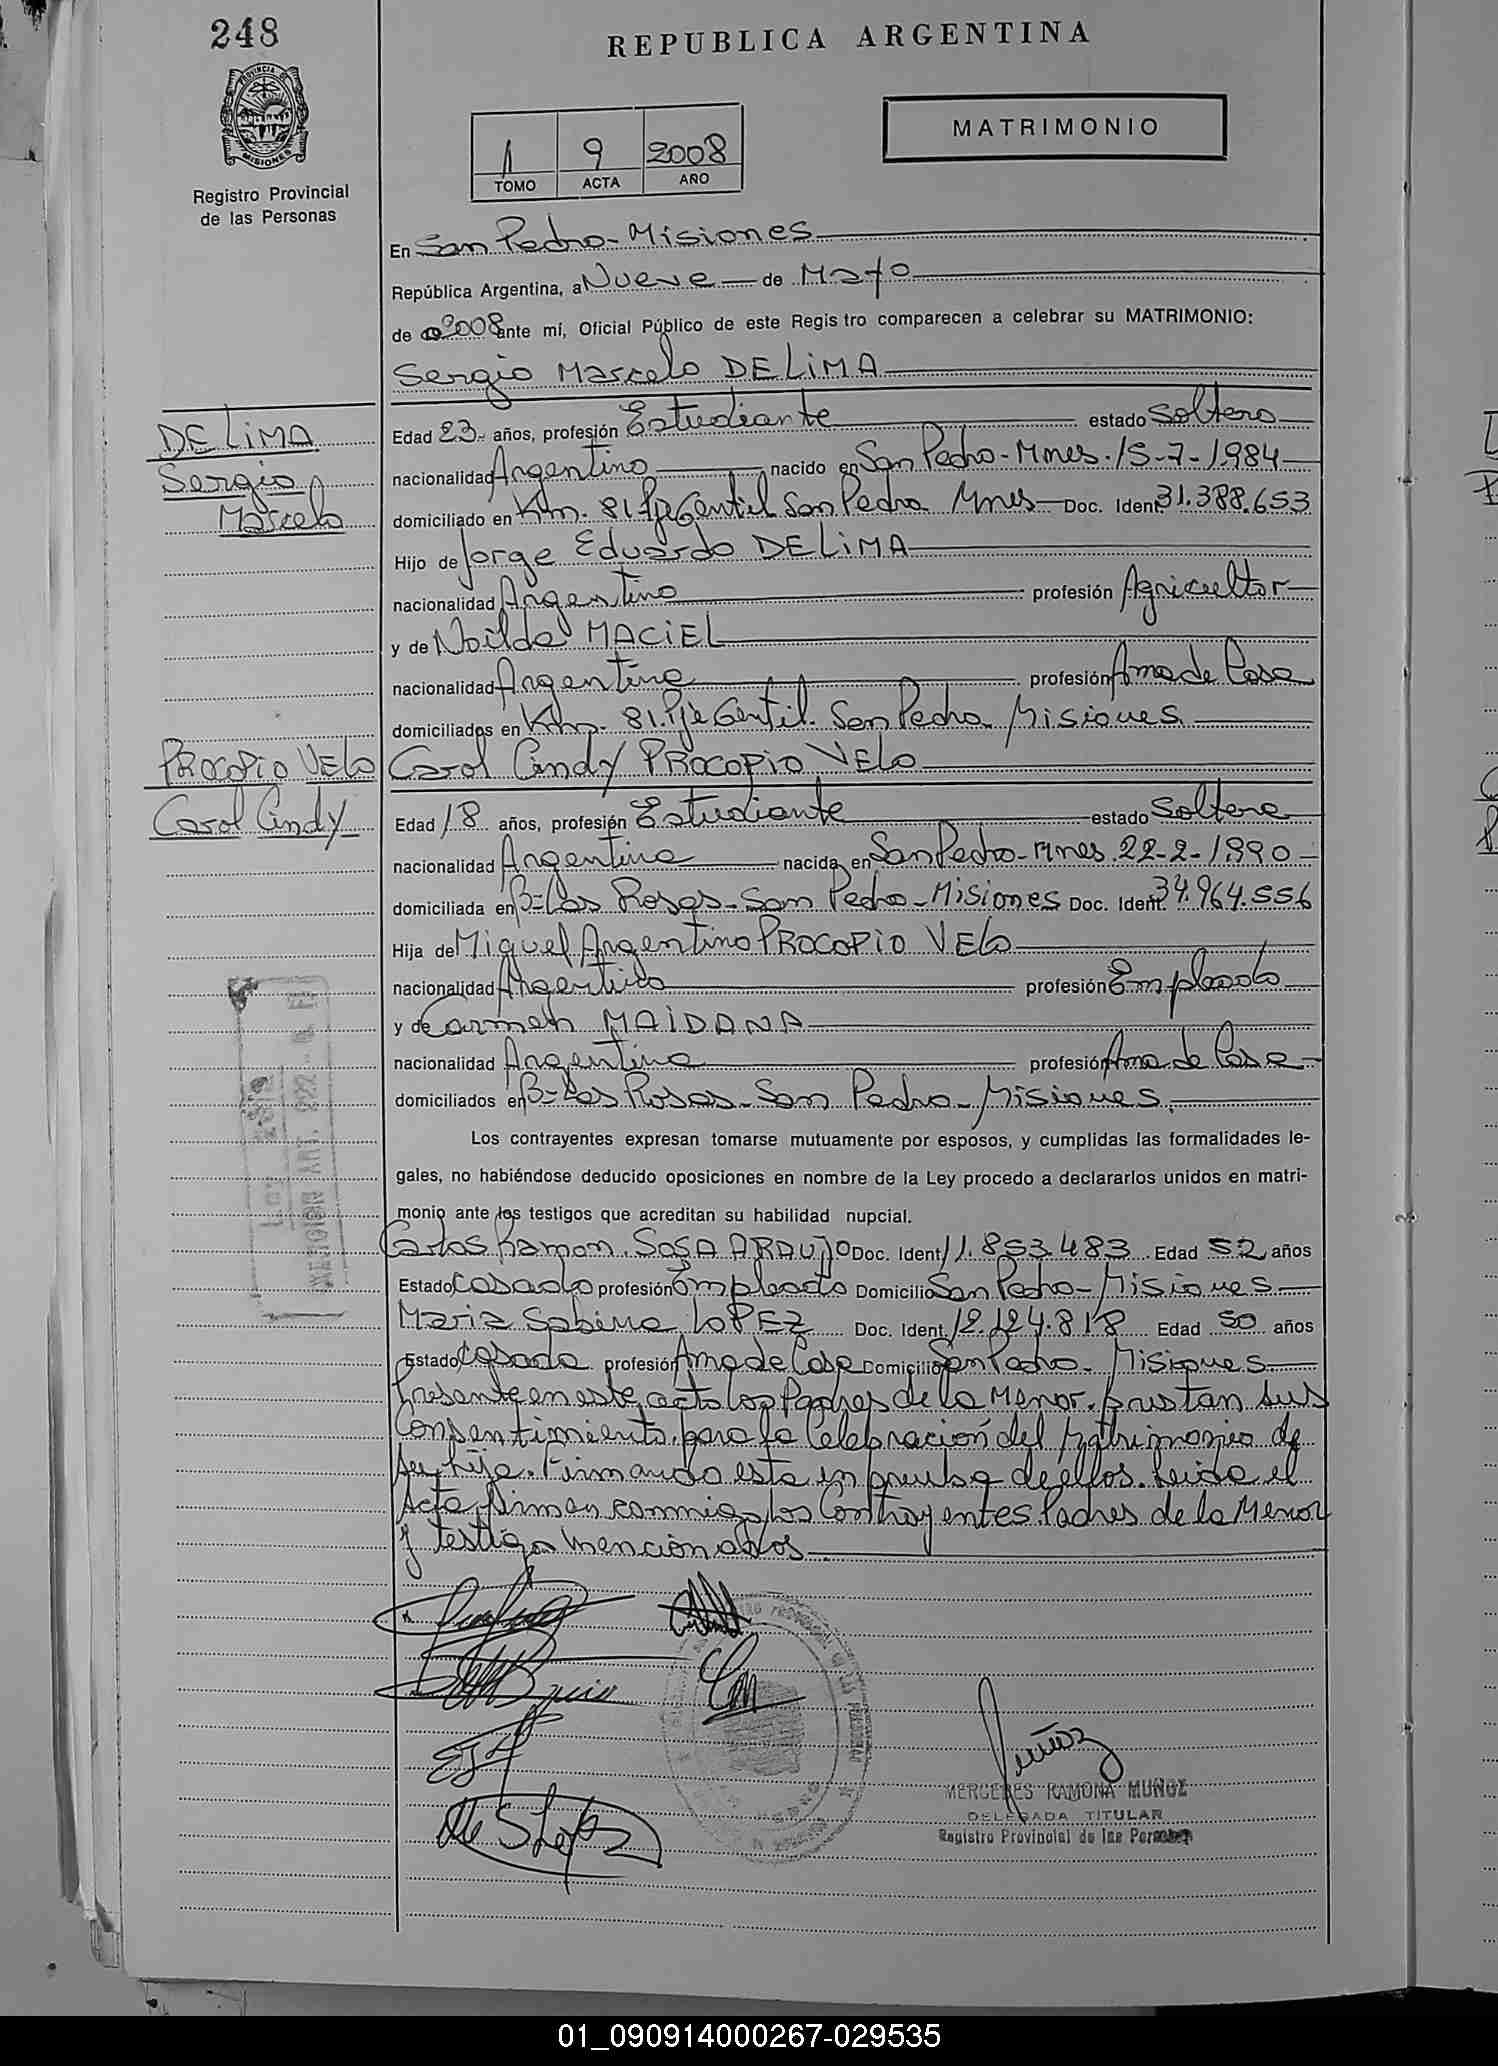 248
REPUBLICA ARGENTINA
PROVINCIA DE
MISIONES
Registro Provincial
de las Personas
1 9 2008
TOMO ACTA AÑO
MATRIMONIO
En San Pedro - Misiones
República Argentina, a Nueve de Mayo
de 2008 ante mí, Oficial Público de este Regis tro comparecen a celebrar su MATRIMONIO:
Sergio Marcelo DE LiMA
DE LiMA
Sergio
Marcelo
Edad 23.- años, profesión Estudiante estado Soltero
nacionalidad Argentino nacido en San Pedro - Mnes. 15-7-1.984
domiciliado en Km. 81 Pje Gentil San Pedro Mnes Doc. Ident. 31.388.653
Hijo de Jorge Eduardo DE LiMA
nacionalidad Argentino profesión Agricultor
y de Noilda MACiEL
nacionalidad Argentina profesión Ama de Casa
domiciliados en Km. 81. Pje Gentil. San Pedro Misiones
PROCOPiO VELO
Carol Cindy
Carol Cindy PROCOPiO VELO
Edad 18 años, profesión Estudiante estado Soltera
nacionalidad Argentina nacida en San Pedro - Mnes. 22-2-1.990
domiciliada en B= Las Rosas - San Pedro - Misiones Doc. Ident. 34.964.556
Hija de Miguel Argentino PROCOPiO VELO
nacionalidad Argentino profesión Empleado
y de Carmen MAiDANA
nacionalidad Argentina profesión Ama de Casa
domiciliados en B= Las Rosas - San Pedro - Misiones.
Los contrayentes expresan tomarse mutuamente por esposos, y cumplidas las formalidades le-
gales, no habiéndose deducido oposiciones en nombre de la Ley procedo a declararlos unidos en matri-
monio ante los testigos que acreditan su habilidad nupcial.
Carlos Ramon SOSA ARAUJO Doc. Ident. 11.853.483 Edad 52 años
Estado Casado profesión Empleado Domicilio San Pedro - Misiones
Maria Sabina LOPEZ Doc. Ident. 12.124.818 Edad 50 años
Estado Casada profesión Ama de Casa Domicilio San Pedro - Misiones
Presente en este acto los Padres de la Menor, prestan sus
Consentimiento, para la Celebración del Matrimonio de
su hija. Firmando esta en prueba de ellos. Leida el
Acta, firman conmigo, los Contrayentes Padres de la Menor
y testigos mencionados
Muñoz
MERCEDES RAMONA MUÑOZ
DELEGADA TITULAR
Registro Provincial de las Personas
01_090914000267-029535